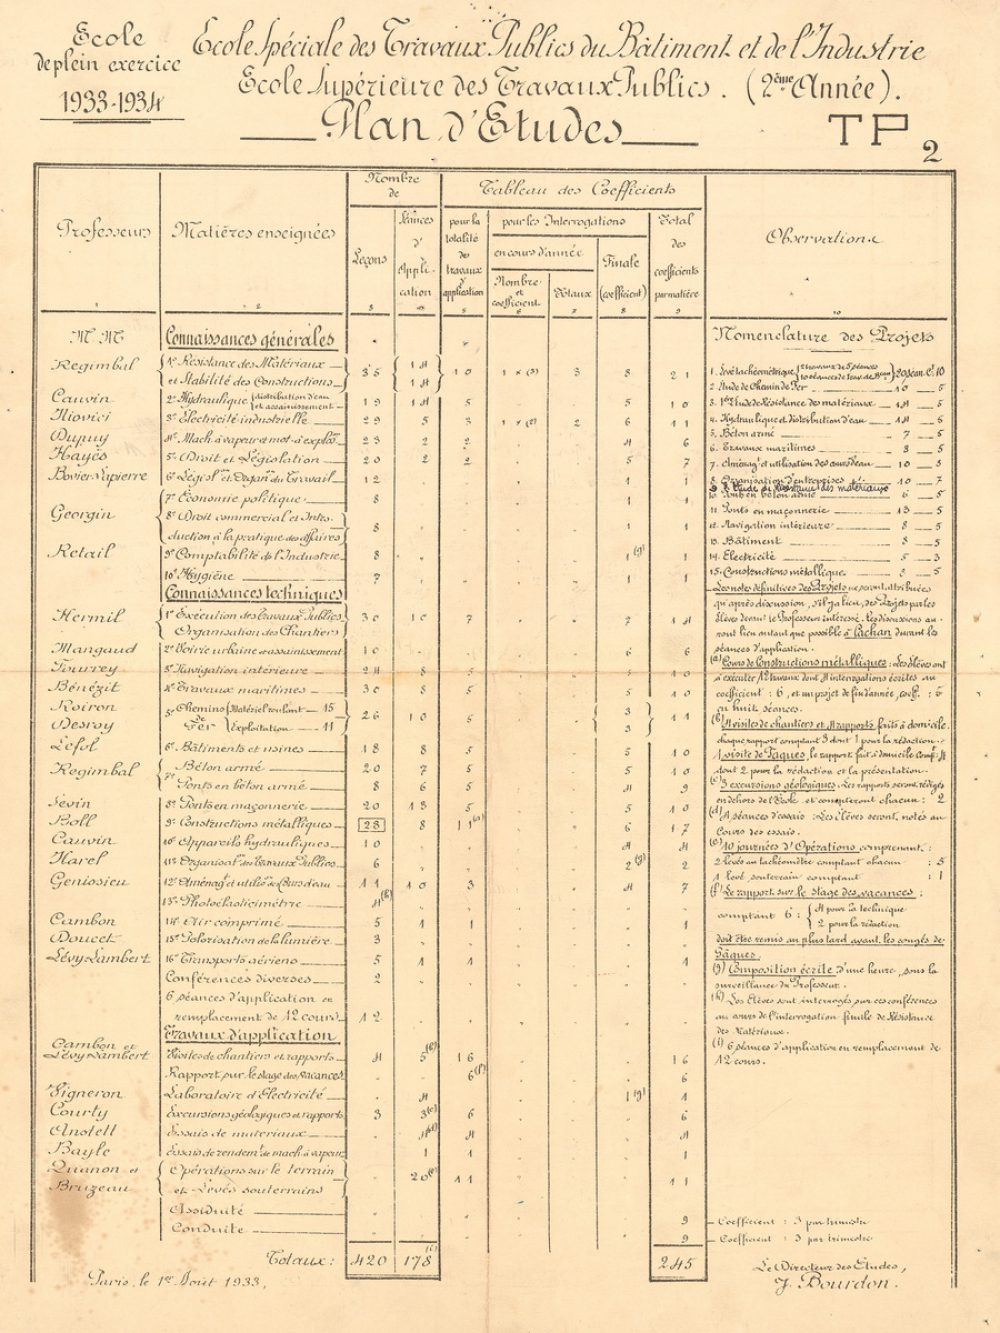 Ecole
de plein exercice
1933-1934
Ecole Spéciale des Travaux Publics du Bâtiment et de l'Industrie
Ecole Supérieure des Travaux Publics. (2ème Année).
Plan d'Etudes
TP 2
Professeurs
Matières enseignées
Nombre de
Leçons
Séances d'Appli-cation
Tableau des Coefficients
pour la totalité des travaux d'application
pour les Interrogations
en cours d'année
Nombre et coefficient
Totaux
Finale (coefficient)
Total des coefficients par matière
Observations
M.M. Connaissances générales
Regimbal 1° Résistance des Matériaux et Stabilité des Constructions 35 14 14 10 1 x (3) 3 8 21
Cauvin 2° Hydraulique (distribution d'eau et assainissement 19 14 5 5 10
Iliovici 3° Electricité industrielle 29 5 3 1 x (2) 2 6 11
Dupuy 4° Mach. à vapeur et mot. à explon 23 2 2 4 6
Hayès 5° Droit et Législation 20 2 2 5 7
Bovier-Lapierre 6° Législon et Organon du Travail 12 1 1
7° Economie politique 8 1 1
Georgin 8° Droit commercial et Intro-duction à la pratique des affaires 8 1 1
Retail 9° Comptabilité de l'Industrie 8 1(g) 1
10° Hygiène 7 1 1
Connaissances techniques
Hermil 1° Exécution des travaux Publics Organisation des Chantiers 30 10 7 7 14
Mangaud 2° Voirie urbaine et assainissement 10 6 6
Tourrey 3° Navigation intérieure 24 8 5 5 10
Bénézit 4° Travaux maritimes 30 8 5 5 10
Roiron 5° Chemins de Fer Matériel roulant 15
Desroy Exploitation 11 26 10 5 3 3 11
Lefol 6° Bâtiments et usines 18 8 5 5 10
Regimbal 7° Béton armé 20 7 5 5 10
Ponts en béton armé 8 6 5 4 9
Sévin 8° Ponts en maçonnerie 20 13 5 5 10
Boll 9° Constructions métalliques 28 8 11(a) 6 17
Cauvin 10° Appareils hydrauliques 10 4 4
Harel 11° Organison des Travaux Publics 6 2(g) 2
Genissieu 12° Aménagt et utilison des Cours d'eau 11 10 3 4 7
13° Photoélasticimétrie 4(h)
Cambon 14° Air comprimé 5 1 1 1
Doucet 15° Valorisation de la lumière 3
Lévy-Lambert 16° Transports aériens 5 1 1 1
Conférences diverses 2
6 séances d'application en
remplacement de 12 cours 12
Travaux d'application
Cambon et Lévy-Lambert Visites de chantiers et rapports 4 5(b) 16 16
Rapport sur le stage des vacances 6(f) 6
Vigneron Laboratoire d'Electricité 4 1(g) 1
Courty Excursions géologiques et rapports 3 3(c) 6 6
Anstett Essais de matériaux 4(d) 4 4
Bayle Essais de rendemt de mach. à vapeur 1 1 1
Quanon et Bruzeau Opérations sur le terrain et Levés souterrains 20(e) 11 11
Assiduité 9
Conduite 9
Totaux: 420 178(i) 245
Paris, le 1er Août 1933.
Nomenclature des Projets
2. Etude de Chemin de Fer 10 5
3. 1ère Etude de Résistance des matériaux 14 5
4. Hydraulique et distribution d'eau 14 5
5. Béton armé 7 5
6. Travaux maritimes 8 5
7. Aménagt et utilisation des cours d'eau 10 3
8. Organisation d'entreprises 10 7
9. 2e Etude de Résistance des matériaux
10. Ponts en béton armé 6 5
11. Ponts en maçonnerie 13 5
12. Navigation intérieure 8 5
13. Bâtiment 8 5
14. Electricité 5 3
15. Constructions métalliques 8 5
Les notes définitives des Projets ne seront attribuées
qu'après discussion, s'il y a lieu, des Projets par les
Elèves devant le Professeur intéressé. Les discussions au-
ront lieu autant que possible à Cachan durant les
séances d'application.
(a) Cours de Constructions métalliques: Les élèves ont
à exécuter 12 travaux dont 4 interrogations écrites au
coefficient: 6, et un projet de fin d'année, coeff.: 5
en huit séances.
(b) 4 visites de chantiers et 4 rapports faits à domicile
chaque rapport comptant 3 dont 1 pour la rédaction.
1 visite de Pâques, le rapport fait à domicile compt. 4
dont 2 pour la rédaction et la présentation.
(c) 3 excursions géologiques. Les rapports seront rédigés
en dehors de l'Ecole et compteront chacun: 2
(d) 4 séances d'essais: Les élèves seront notés au
Cours des essais.
(e) 10 journées d'Opérations comprenant:
2 levés au tachéomètre comptant chacun: 5
1 levé souterrain comptant: 1
(f) Le rapport sur le stage des vacances:
comptant 6: 4 pour la technique
2 pour la rédaction
doit être remis au plus tard avant les congés de
Pâques.
(g) Composition écrite d'une heure, sous la
surveillance du Professeur.
(h) Les Elèves sont interrogés sur ces conférences
au cours de l'interrogation finale de Résistance
des Matériaux.
(i) 6 séances d'application en remplacement de
12 cours.
Coefficient: 3 par trimestre
Coefficient: 3 par trimestre
Le Directeur des Etudes,
J. Bourdon.